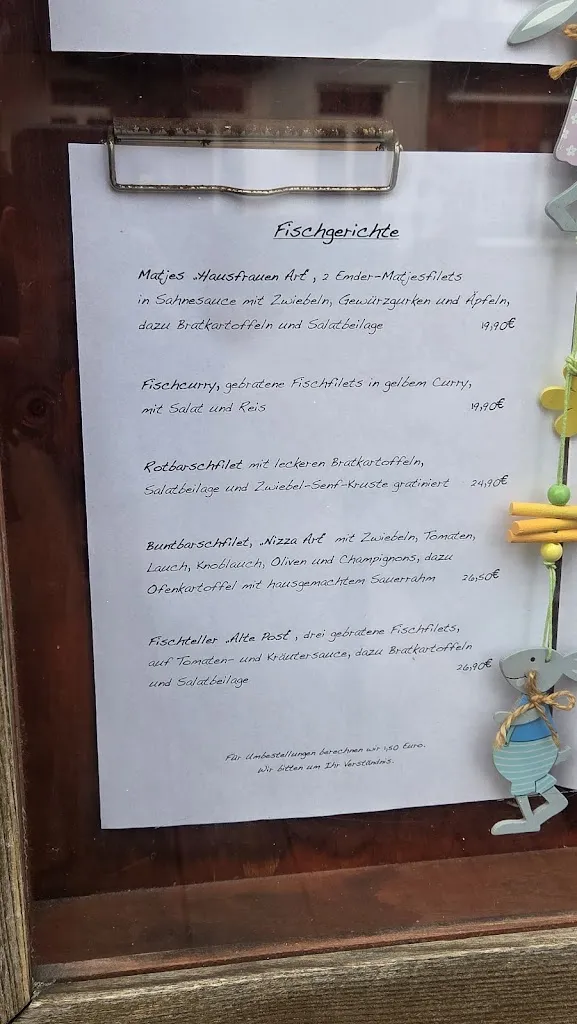 Fischgerichte
Matjes „Hausfrauen Art“, 2 Emder-Matjesfilets
in Sahnesauce mit Zwiebeln, Gewürzgurken und Äpfeln,
dazu Bratkartoffeln und Salatbeilage 19,90€
Fischcurry, gebratene Fischfilets in gelbem Curry,
mit Salat und Reis 19,90€
Rotbarschfilet mit leckeren Bratkartoffeln,
Salatbeilage und Zwiebel-Senf-Kruste gratiniert 24,90€
Buntbarschfilet, „Nizza Art“ mit Zwiebeln, Tomaten,
Lauch, Knoblauch, Oliven und Champignons, dazu
Ofenkartoffel mit hausgemachtem Sauerrahm 26,50€
Fischteller „Alte Post“, drei gebratene Fischfilets,
auf Tomaten- und Kräutersauce, dazu Bratkartoffeln
und Salatbeilage 26,90€
Für Umbestellungen berechnen wir 1,50 Euro.
Wir bitten um Ihr Verständnis.